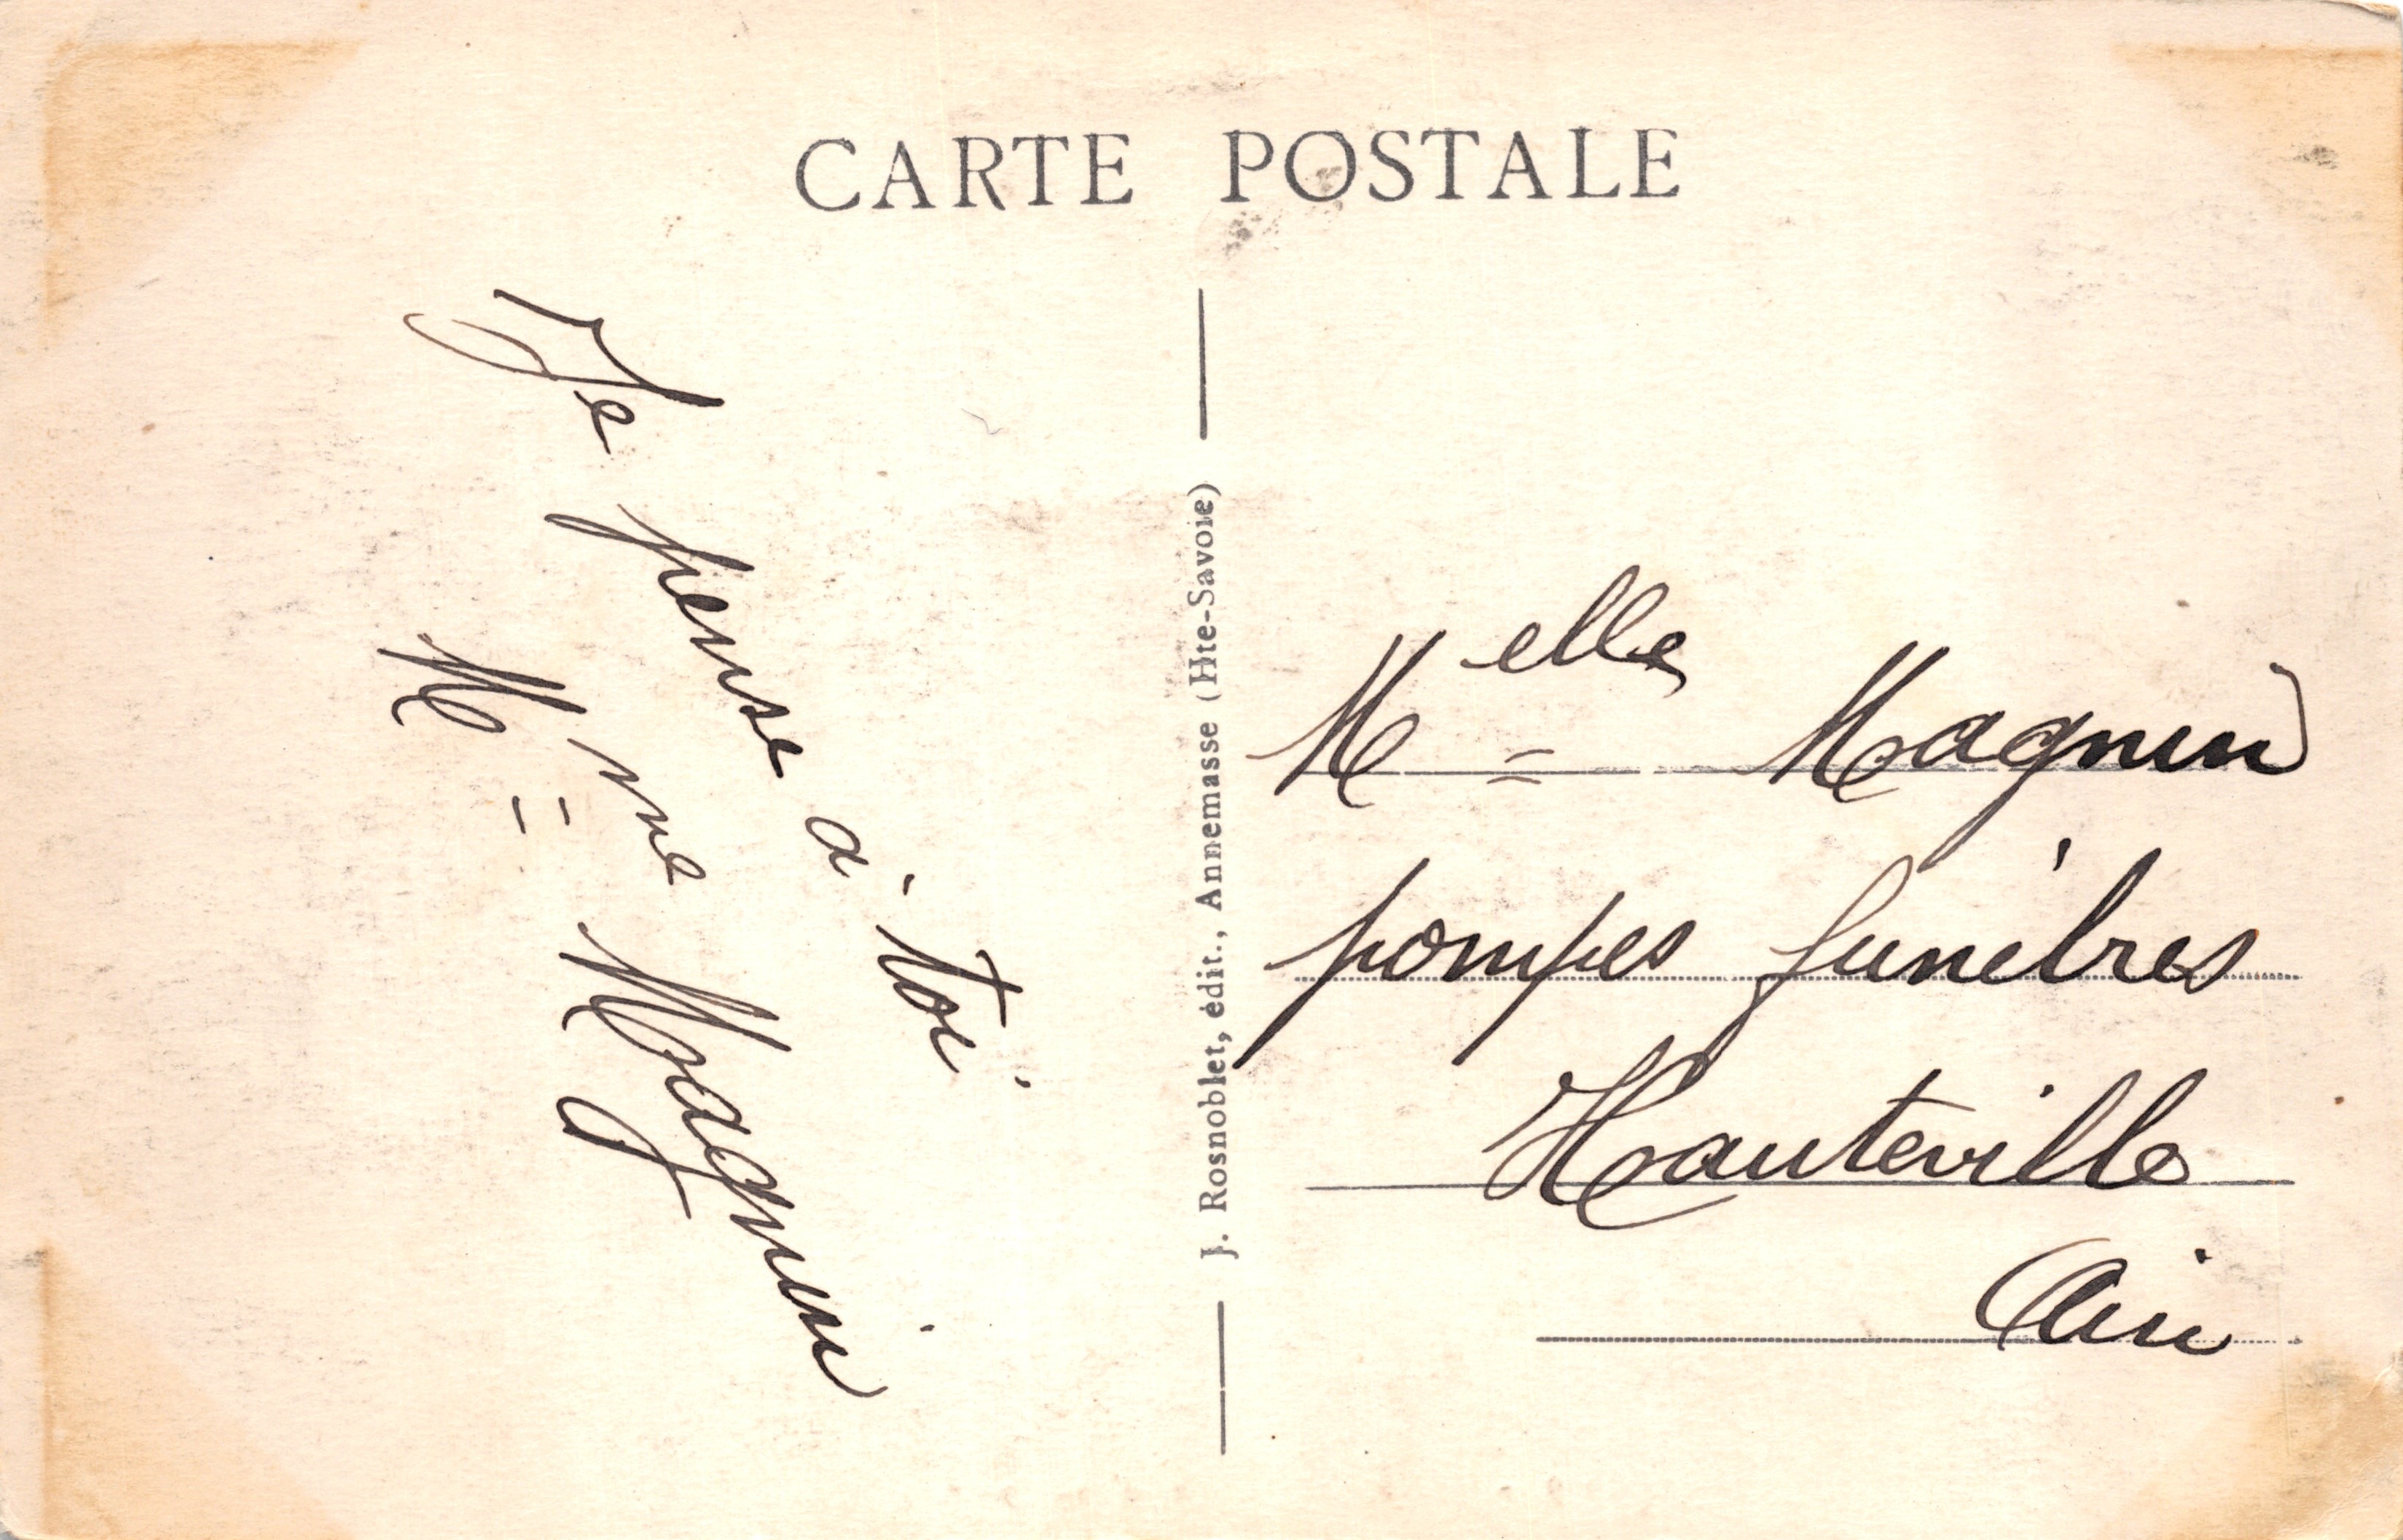 CARTE POSTALE
Je pense à toi
Mme Magnin
J. Rosnoblet, édit., Annemasse (Hte-Savoie)
Melle Magnin
pompes funèbres
Hauteville
Ain